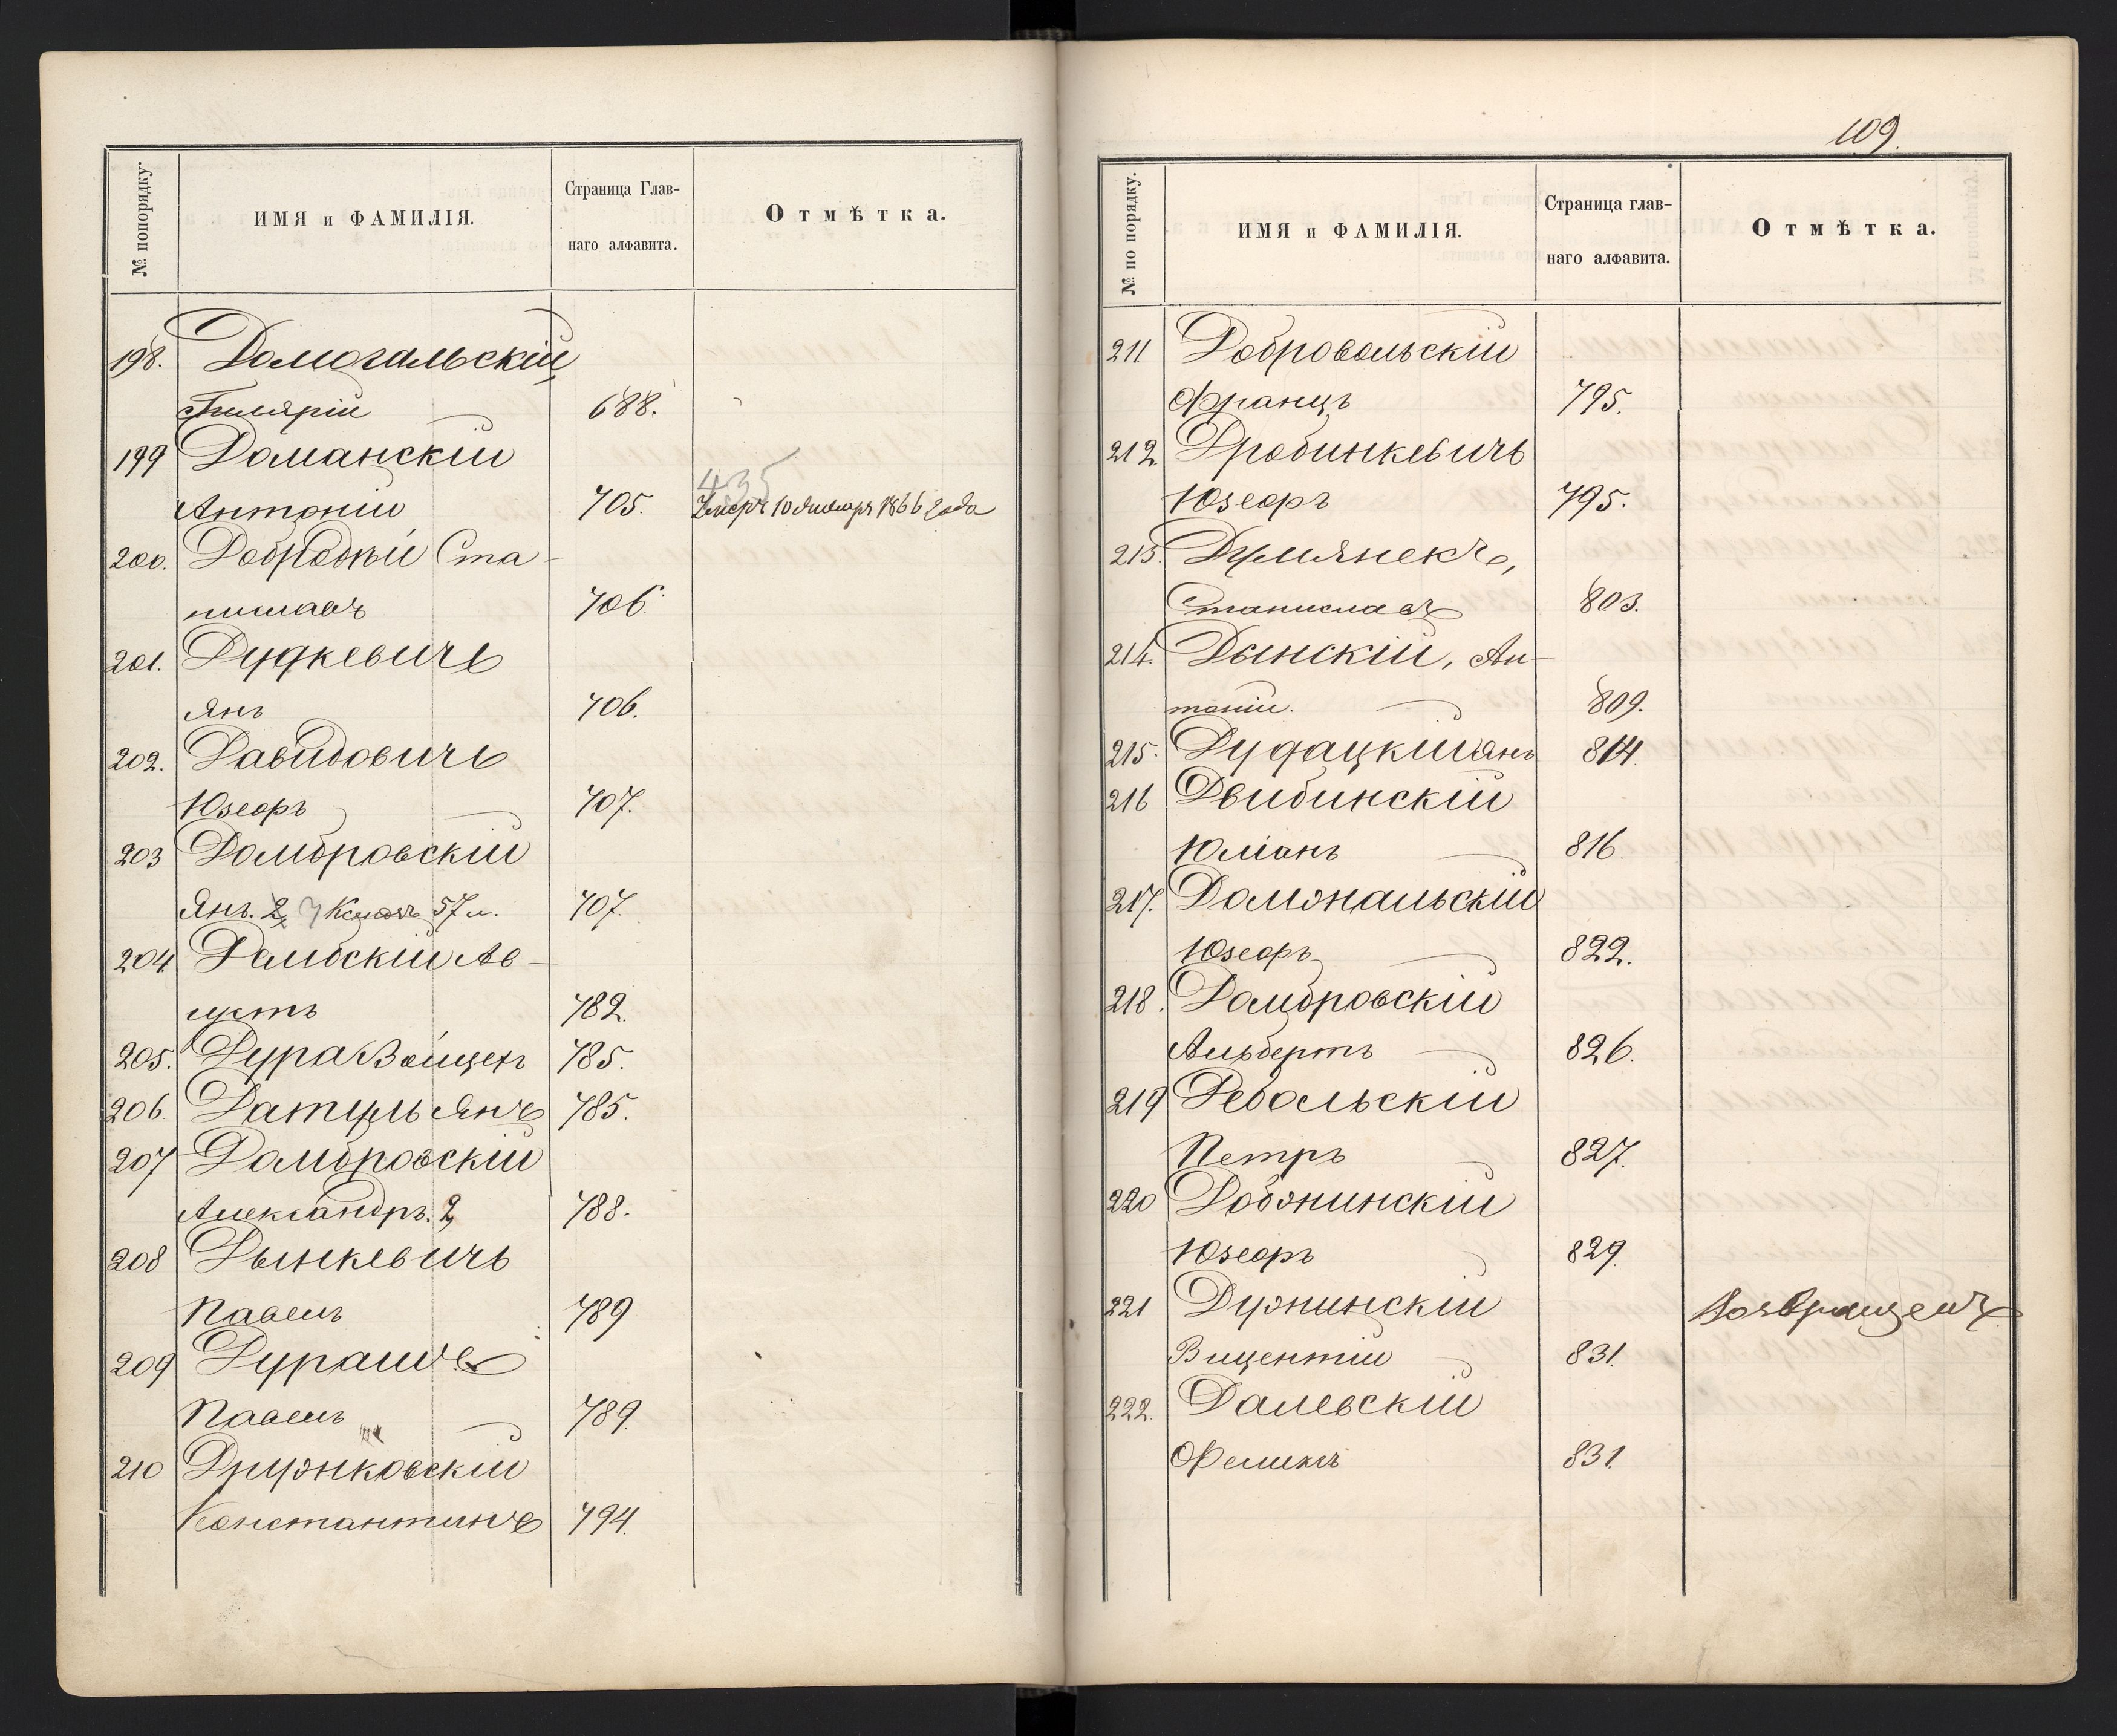 № попорядку.
ИМЯ и ФАМИЛІЯ.
Страница Глав-
наго алфавита.
Отмѣтка.
198. Домогальскій
Гилярій 688.
199 Доманскій
435
Антоній 705. Умеръ 10 Января 1866 года
200. Добродзкій Ста-
ниславъ 706.
201. Дудкевичъ
Янъ 706.
202. Давидовичъ
Юзефъ 707.
203 Домбровскій
Янъ. 2, 57 л. 707.
204 Дембскій Ав-
густъ 782.
205. Дура Войцех 785.
206. Датуль Янъ 785.
207 Домбровскій
Александръ. 2, 788.
208 Дынкевичъ
Павелъ 789
209 Дурашъ
Павелъ 789.
210 Дружковскій
Константинъ 794.
109.
№ по порядку.
ИМЯ и ФАМИЛІЯ.
Страница глав-
наго алфавита.
Отмѣтка.
211 Добровольскій
Францъ 795.
212. Дробинкевичъ
Юзефъ 795.
213. Думянекъ,
Станиславъ 803.
214. Дынскій, Ан-
тоній. 809.
215. Дудацкій Янъ 814
216 Двибинскій
Юліанъ 816.
217. Доможальскій
Юзефъ 822.
218. Домбровскій
Альбертъ 826.
219 Дебольскій
Петръ 827.
220 Добжинскій
Юзефъ 829.
221 Дужинскій Возвращенъ
Вицентій 831.
222. Далевскій
Феликсъ 831.